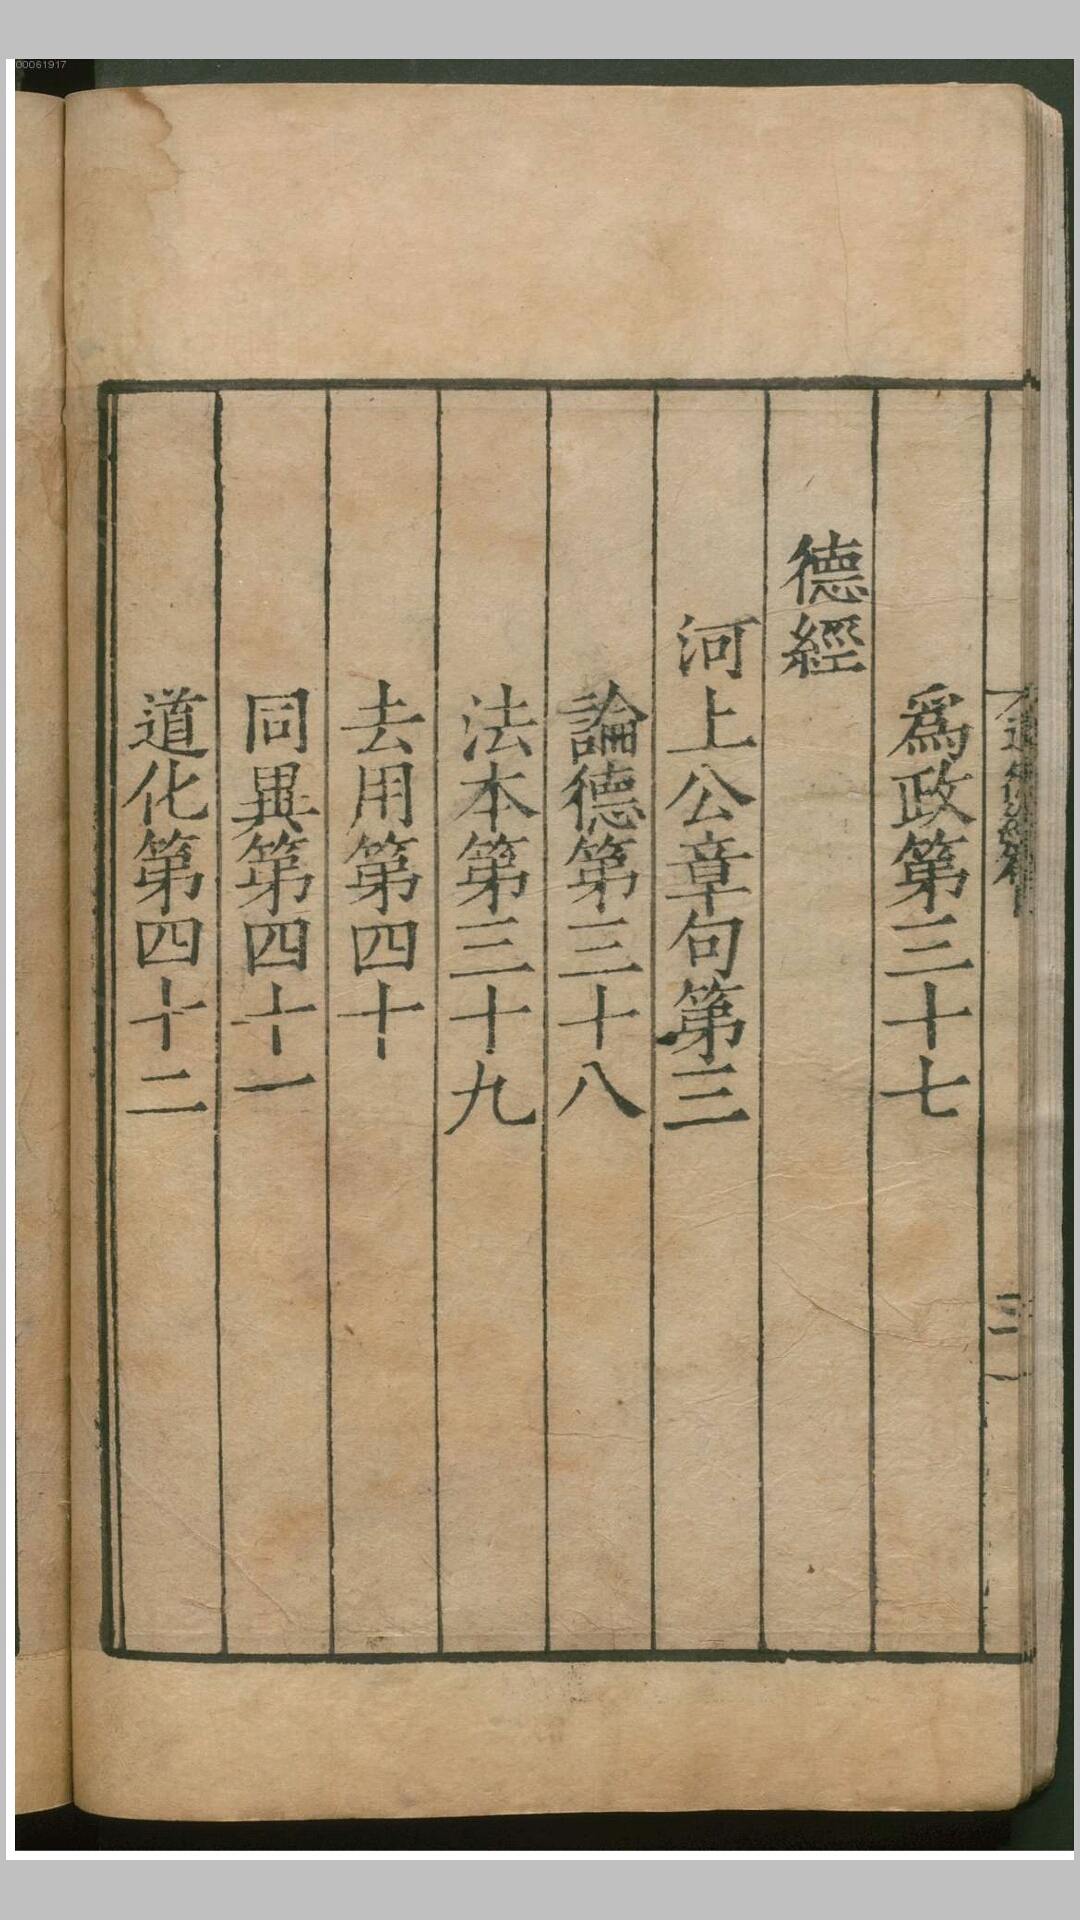 00061917
爲政第三十七
德經
河上公章句第三
論德第三十八
法本第三十九
去用第四十
同異第四十一
道化第四十二
三